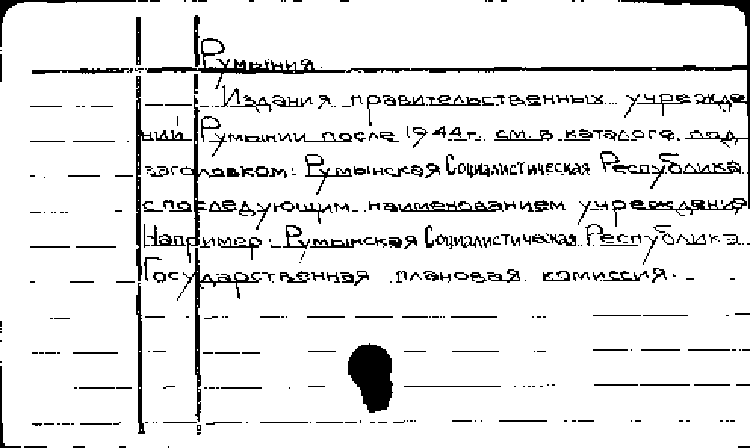 Румыния
Издания правительственных учрежде
ний Румынии после 1944г. см. в каталоге под
заголовком: Румынская Социалистическая Республика
с последующим наименованием учреждения
Например: Румынская Социалистическая Республика.
Государственная плановая комиссия.